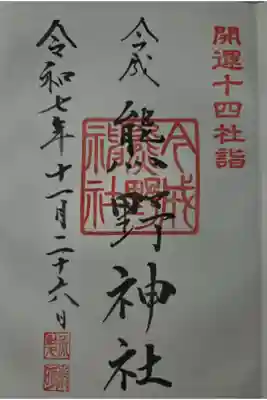 開運十四社詣
今戌 熊野神社
今戌熊野神社
令和七年十一月二十六日